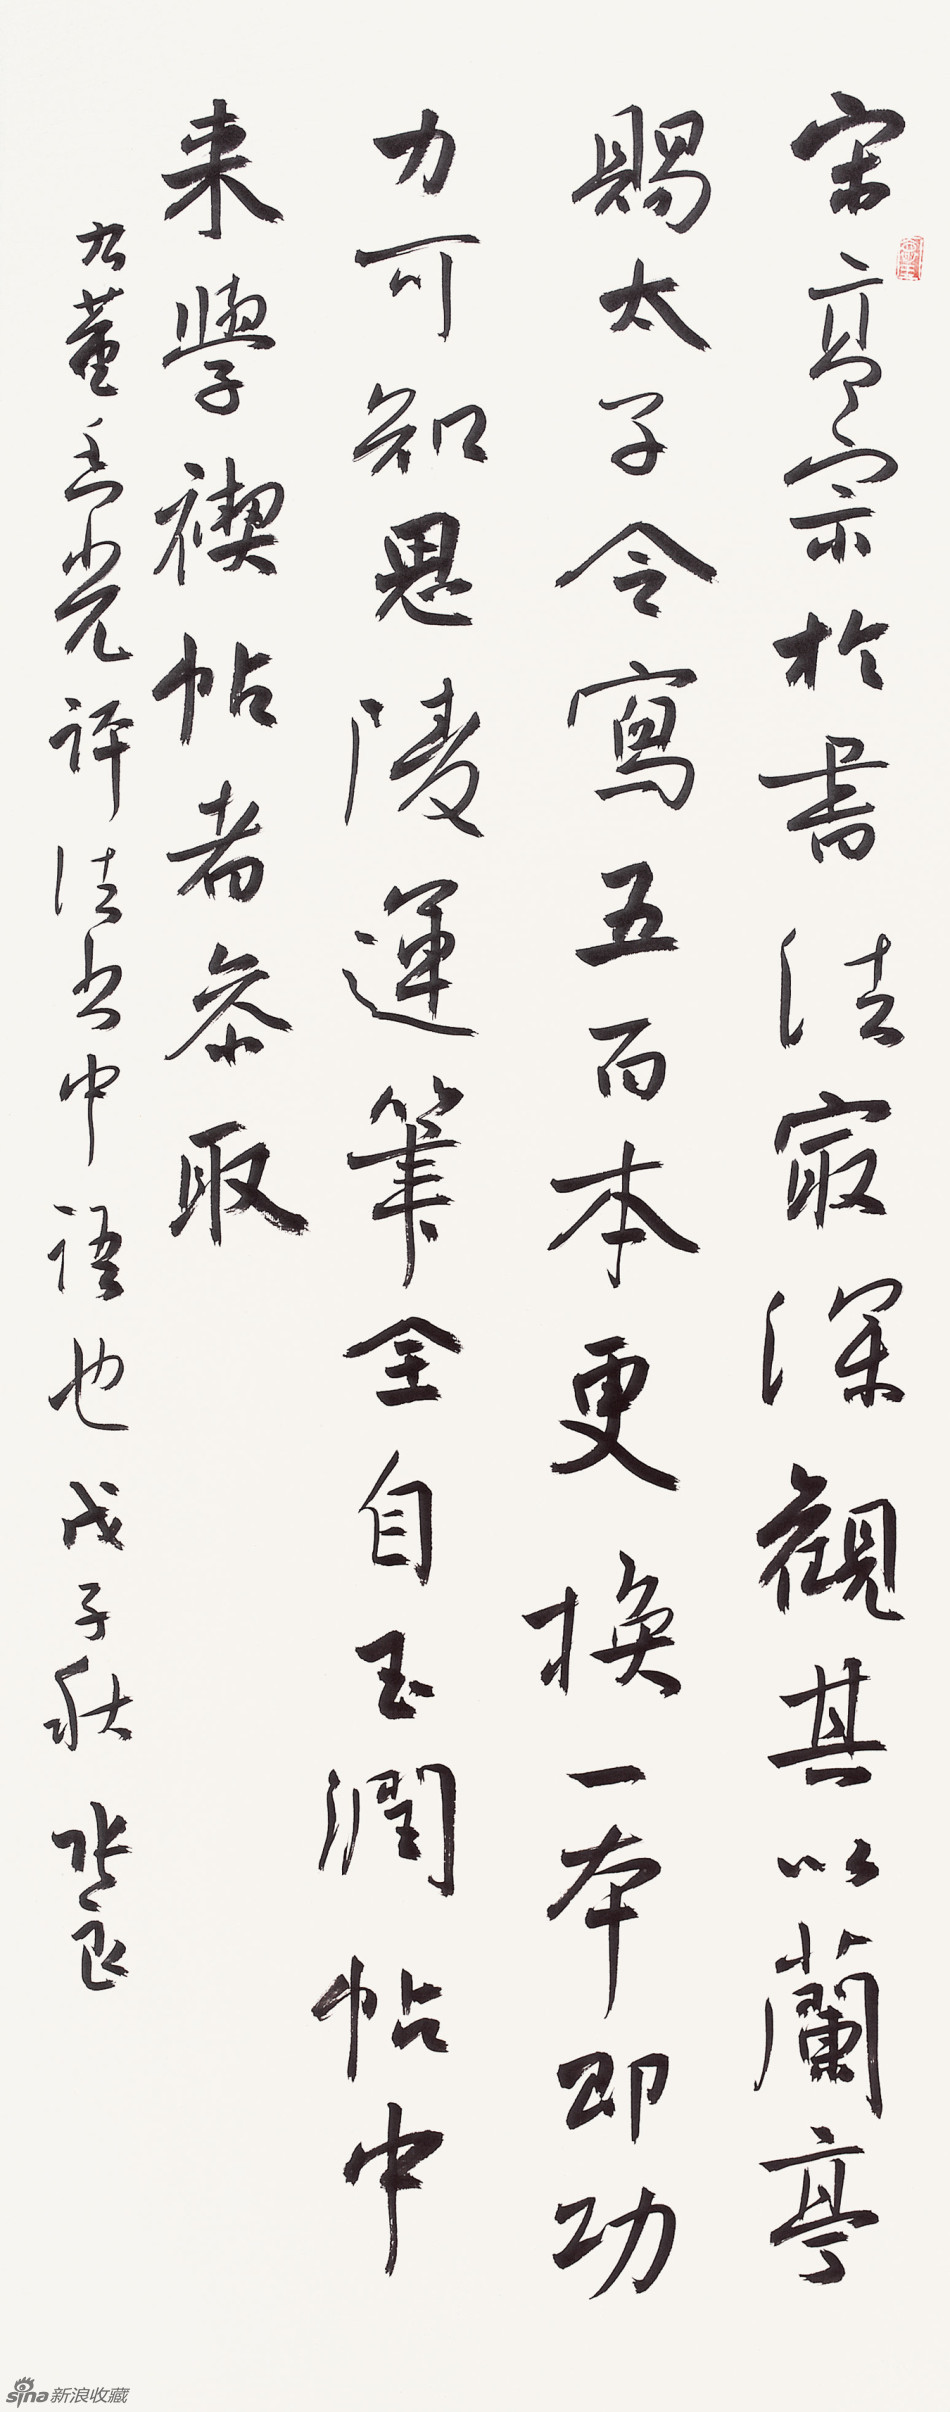 宋高宗於書法最深觀其以蘭亭
賜太子令寫五百本更換一本即功
力可知思陵運筆全自玉潤帖中
来學禊帖者參取
右董香光評法書中語也戊子秋張良
sina新浪收藏